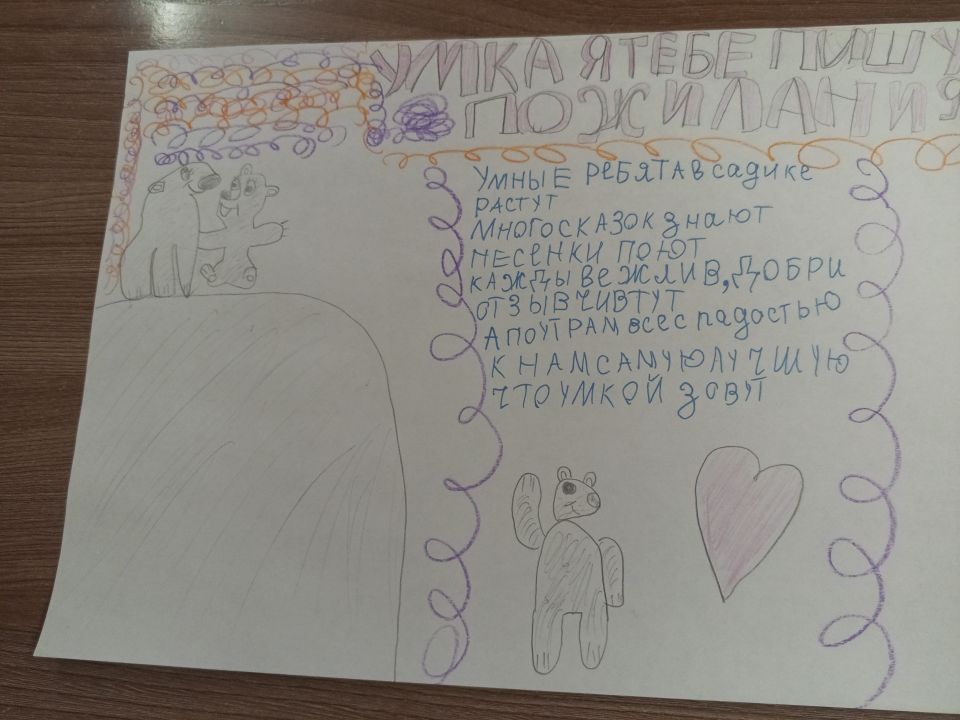 УМКА Я ТЕБЕ ПИШУ
ПОЖИЛАНИЯ
УМНЫЕ РЕБЯТА В садике
РАСТУТ
МНОГО СКАЗОК знают
ПЕСЕНКИ ПОЮТ
КАЖДЫ ВЕЖЛИВ, ДОБРИ
ОТЗЫВЧИВ ТУТ
А ПО УТРАМ всё с радостью
К НАМ САМУЮ ЛУЧШУЮ
ЧТО УМКОЙ ЗОВУТ